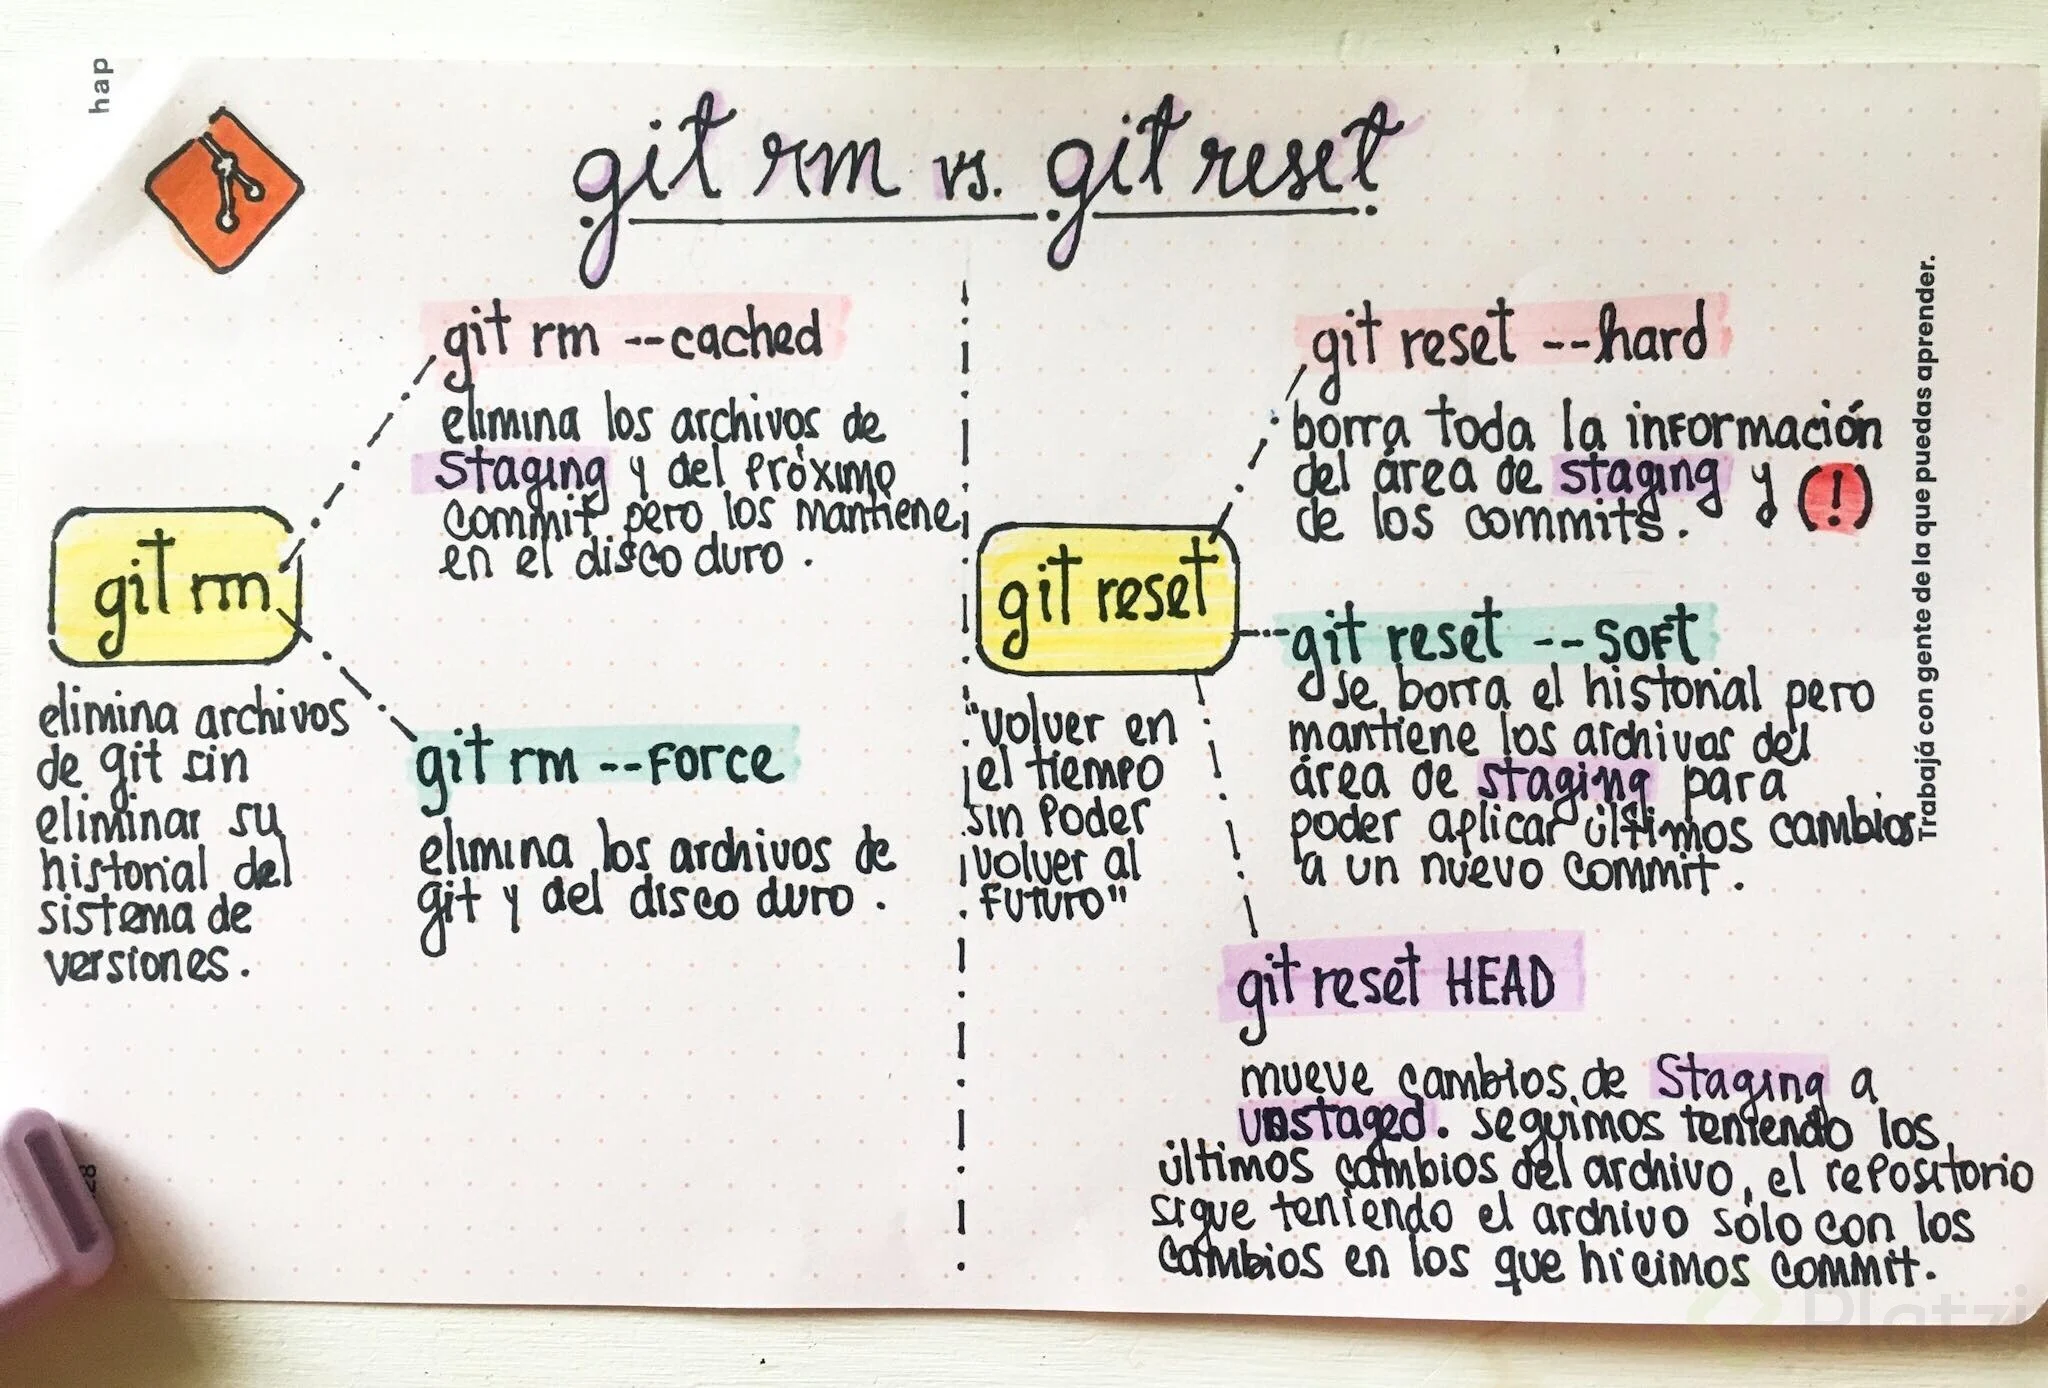 hap
git rm vs. git reset
git rm
elimina archivos
de git sin
eliminar su
historial del
sistema de
versiones.
git rm --cached
elimina los archivos de
staging y del próximo
commit pero los mantiene
en el disco duro.
git rm --force
elimina los archivos de
git y del disco duro.
git reset
"volver en
el tiempo
sin poder
volver al
futuro"
git reset --hard
borra toda la información
del área de staging y
de los commits. (!)
git reset --soft
se borra el historial pero
mantiene los archivos del
área de staging para
poder aplicar últimos cambios
a un nuevo commit.
git reset HEAD
mueve cambios de Staging a
unstaged. seguimos teniendo los
últimos cambios del archivo, el repositorio
sigue teniendo el archivo sólo con los
cambios en los que hicimos commit.
Trabajá con gente de la que puedas aprender.
28
Platzi